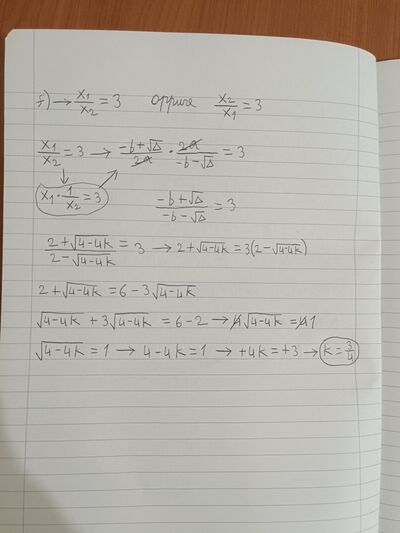 f) → x₁/x₂ = 3 oppure x₂/x₁ = 3
x₁/x₂ = 3 → (-b+√Δ)/2a · 2a/(-b-√Δ) = 3
x₁ · 1/x₂ = 3
(-b+√Δ)/(-b-√Δ) = 3
(2+√(4-4k))/(2-√(4-4k)) = 3 → 2+√(4-4k) = 3(2-√(4-4k))
2+√(4-4k) = 6-3√(4-4k)
√(4-4k) + 3√(4-4k) = 6-2 → 4√(4-4k) = 4 1
√(4-4k) = 1 → 4-4k = 1 → +4k = +3 → k = 3/4